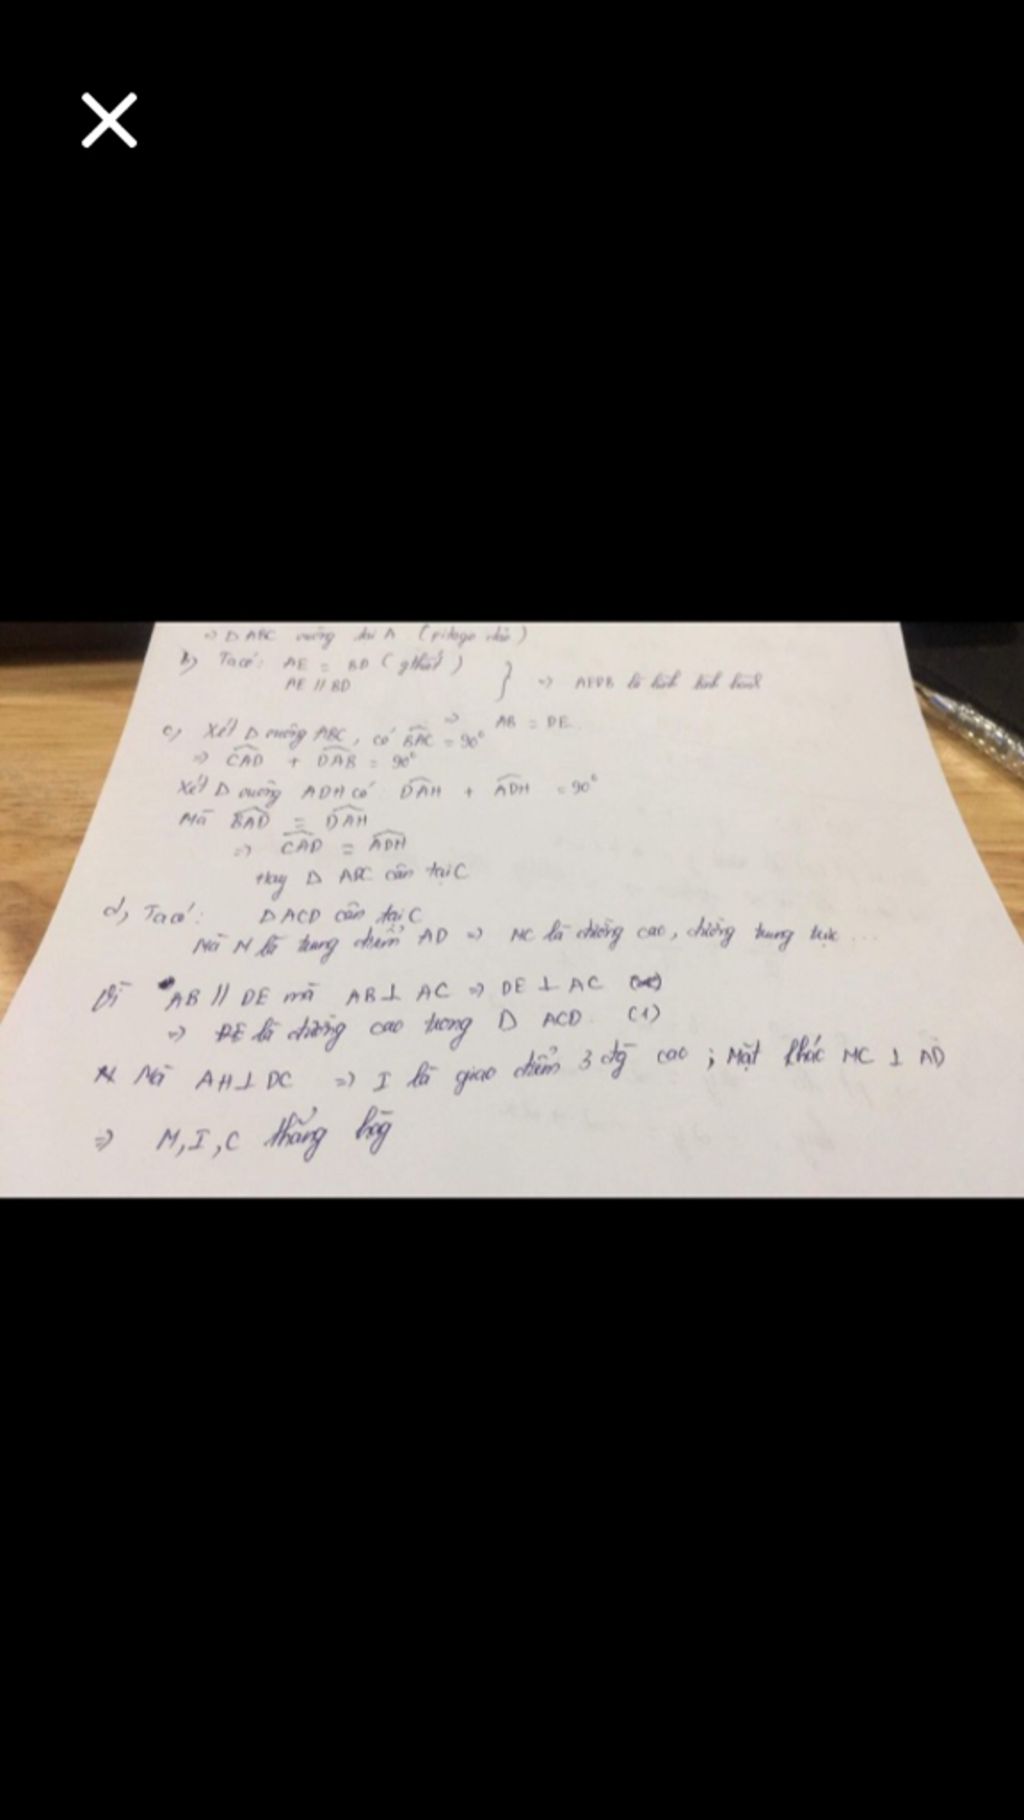 => Δ ABC vuông tại A (pitago đảo)
b, Ta có: AE = BD (gthiết)
AE // BD } => AEDB là hình bình hành
=> AB = DE.
c, Xét Δ vuông ABC, có BAC = 90°
=> CAD + DAB = 90°
Xét Δ vuông ADH có DAH + ADH = 90°
Mà BAD = DAH
=> CAD = ADH
Hay Δ ADC cân tại C
d, Ta có: Δ ACD cân tại C
Mà M là trung điểm AD => MC là đường cao, đường trung trực ...
Vì AB // DE mà AB ⊥ AC => DE ⊥ AC
=> DE là đường cao trong Δ ACD. (1)
Mà AH ⊥ DC => I là giao điểm 3 đg cao ; Mặt khác MC ⊥ AD
=> M, I, C thẳng hàg